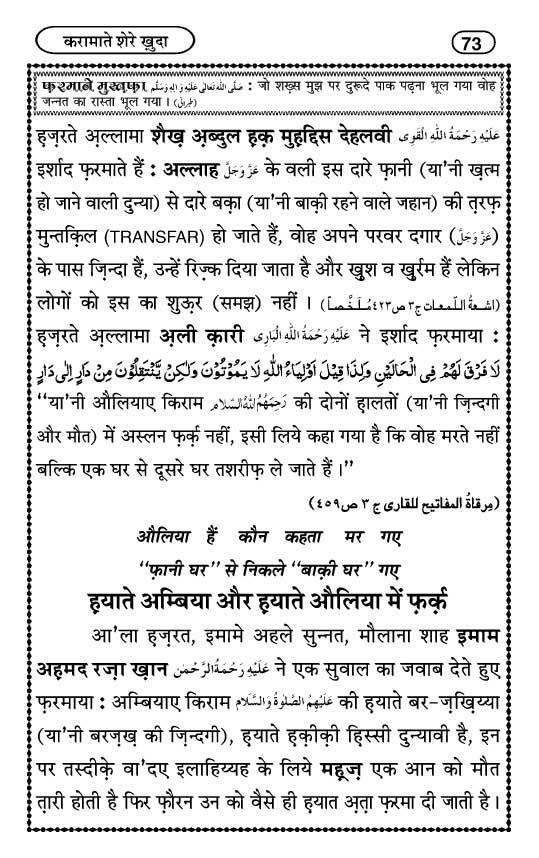 करामाते शेरे ख़ुदा
73
फ़रमाने मुस्तफ़ा صَلَّى اللّٰه تَعَالٰى عَلَيْهِ وَاٰلِهٖ وَسَلَّم : जो शख़्स मुझ पर दुरूदे पाक पढ़ना भूल गया वोह
जन्नत का रास्ता भूल गया । (طبرانی)
हज़रते अ़ल्लामा शैख़ अ़ब्दुल ह़क़ मुह़द्दिस देहलवी عَلَيْهِ رَحْمَةُ اللّٰهِ الْقَوِى
इर्शाद फ़रमाते हैं : अल्लाह عَزَّوَجَلَّ के वली इस दारे फ़ानी (या'नी ख़त्म
हो जाने वाली दुन्या) से दारे बक़ा (या'नी बाक़ी रहने वाले जहान) की त़रफ़
मुन्तक़िल (TRANSFAR) हो जाते हैं, वोह अपने परवर दगार (عَزَّوَجَلَّ)
के पास ज़िन्दा हैं, उन्हें रिज़्क़ दिया जाता है और ख़ुश व ख़ुर्रम हैं लेकिन
लोगों को इस का शुऊ़र (समझ) नहीं । (اشعةُ اللّمعات ج۳ ص۴۲۳ مُلَخَّصاً)
हज़रते अ़ल्लामा अ़ली क़ारी عَلَيْهِ رَحْمَةُ اللّٰهِ الْبَارِى ने इर्शाद फ़रमाया :
لَا فَرْقَ لَهُمْ فِى الْحَالَيْنِ وَلِذَا قِيْلَ اَوْلِيَاءُ اللّٰهِ لَا يَمُوْتُوْنَ وَلٰكِنْ يَّنْتَقِلُوْنَ مِنْ دَارٍ اِلٰى دَارٍ
“या'नी औलियाए किराम رَحِمَهُمُ اللهُ السَّلَام की दोनों ह़ालतों (या'नी ज़िन्दगी
और मौत) में अस्लन फ़र्क़ नहीं, इसी लिये कहा गया है कि वोह मरते नहीं
बल्कि एक घर से दूसरे घर तशरीफ़ ले जाते हैं ।”
(مِرقاةُ المفاتيح للقارى ج ۳ ص۴۵۹)
औलिया हैं कौन कहता मर गए
“फ़ानी घर” से निकले “बाक़ी घर” गए
ह़याते अम्बिया और ह़याते औलिया में फ़र्क़
आ'ला ह़ज़रत, इमामे अहले सुन्नत, मौलाना शाह इमाम
अह़मद रज़ा ख़ान عَلَيْهِ رَحْمَةُ الرَّحْمٰن ने एक सुवाल का जवाब देते हुए
फ़रमाया : अम्बियाए किराम عَلَيْهِمُ الصَّلٰوةُ وَالسَّلَام की ह़याते बर-ज़ख़िय्या
(या'नी बरज़ख़ की ज़िन्दगी), ह़याते ह़क़ीक़ी ह़िस्सी दुन्यावी है, इन
पर तस्दीक़े वा'दए इलाहिय्यह के लिये मह़ूज़ एक आन को मौत
त़ारी होती है फिर फ़ौरन उन को वैसे ही ह़यात अ़त़ा फ़रमा दी जाती है ।